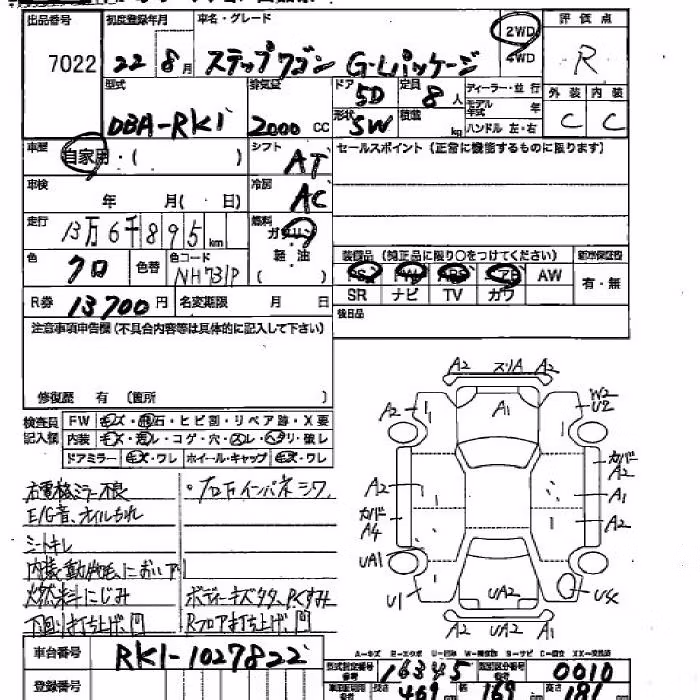 出品番号 初度登録年月 車名・グレード 2WD 評価点
7022 22年8月 ステップワゴン G-Lパッケージ 4WD R
型式 排気量 ドア 5D 定員 8人 ディーラー・並行 外装 内装
DBA-RK1 2000cc 形状 SW 積載 kg モデル年式 年 ハンドル 左・右 C C
車歴 自家用・( ) シフト AT セールスポイント (正常に機能するものに限ります)
車検 年 月(・ 日) 冷房 AC
走行 13万6千895km 燃料 ガソリン
色 クロ 色替 色コード NH731P 軽油 ( )
装備品 (純正品に限り○をつけてください) 新車保証書
PS PW ABS AW 有・無
SR ナビ TV カワ
R券 13700円 名変期限 月 日 後日品
注意事項申告欄 (不具合内容等は具体的に記入して下さい)
修復歴 有 (箇所 )
検査員記入欄 FW キズ・飛石・ヒビ割・リペア跡・X要
内装 キズ・汚レ・コゲ・穴・スレ・ヘタリ・破レ
ドアミラー キズ・ワレ ホイール・キャップ キズ・ワレ
右電格ミラー不良 ・フロア下インパネシワ
E/G音、オイルもれ
シートキレ
内装
燃料にじみ ボディーキズタタ、Pくすみ
下回り打ち上げ、凹 Rフロア打ち上げ、凹
A2 スリA A2
A2 A1 W2 U2
カバー A2
A2 A1
カバー A4 A2
UA1
U1 UA2 U4
A2 UA2 A2
車台番号 RK1-1027822
登録番号
型式指定番号 16345 類別区分番号 0010
長さ 469 幅 169 高さ 181